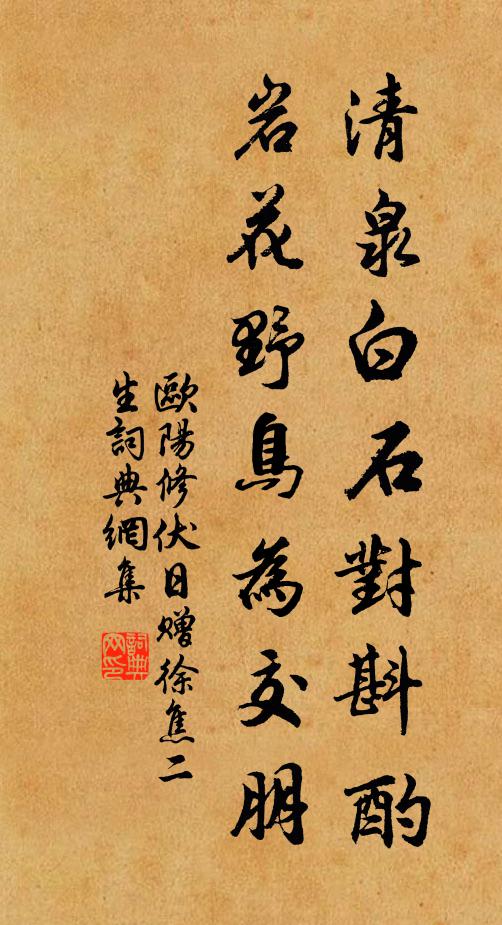 清泉白石對斟酌
岩花野鳥為交朋
歐陽修伏日贈徐焦二
生詞典網集
詞典網印